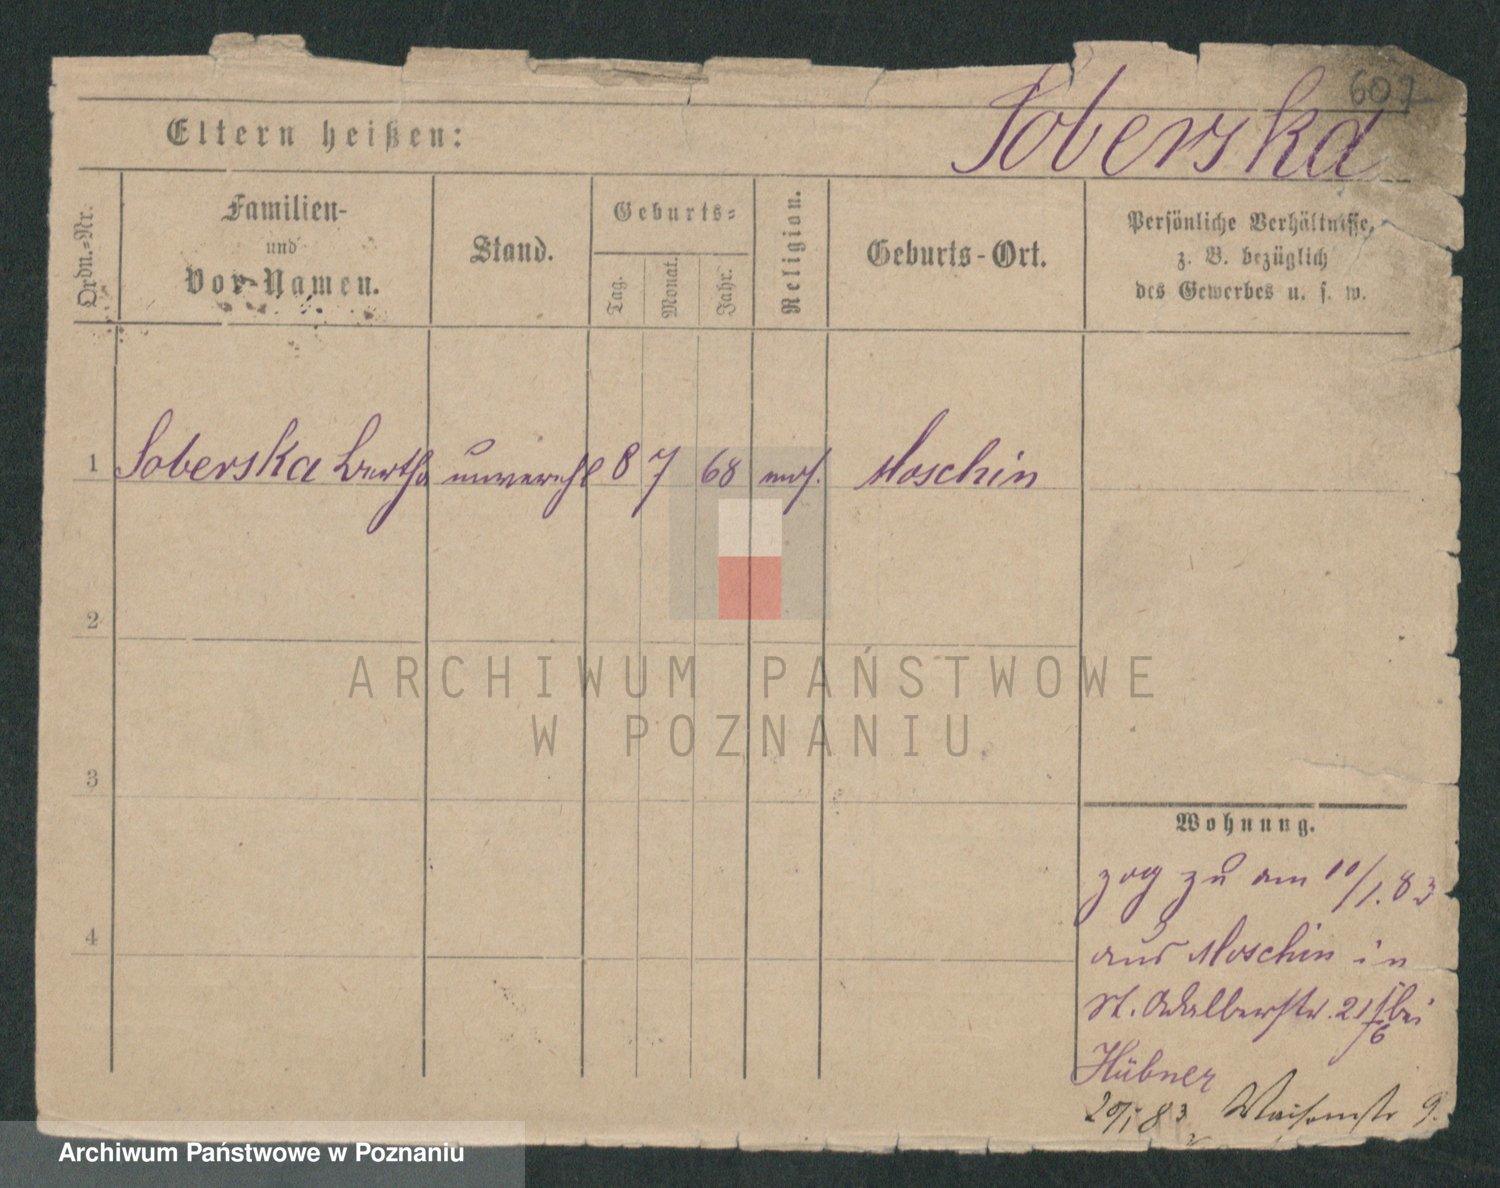 607
Soberska
Eltern heißen:
Ordn.-Nr.
Familien-
und
Vor-Namen.
Stand.
Geburts-
Tag.
Monat.
Jahr.
Religion.
Geburts-Ort.
Persönliche Verhältnisse,
z. B. bezüglich
des Gewerbes u. s. w.
1 Soberska Bertha unverehl 8 7 68 mos. Moschin
2
3
4
Wohnung.
zog zu am 10/1.83
aus Moschin in
St. Adalbertstr. 21/6 bei
Hübner
83 Waisenstr 9.
ARCHIWUM PAŃSTWOWE
W POZNANIU
Archiwum Państwowe w Poznaniu